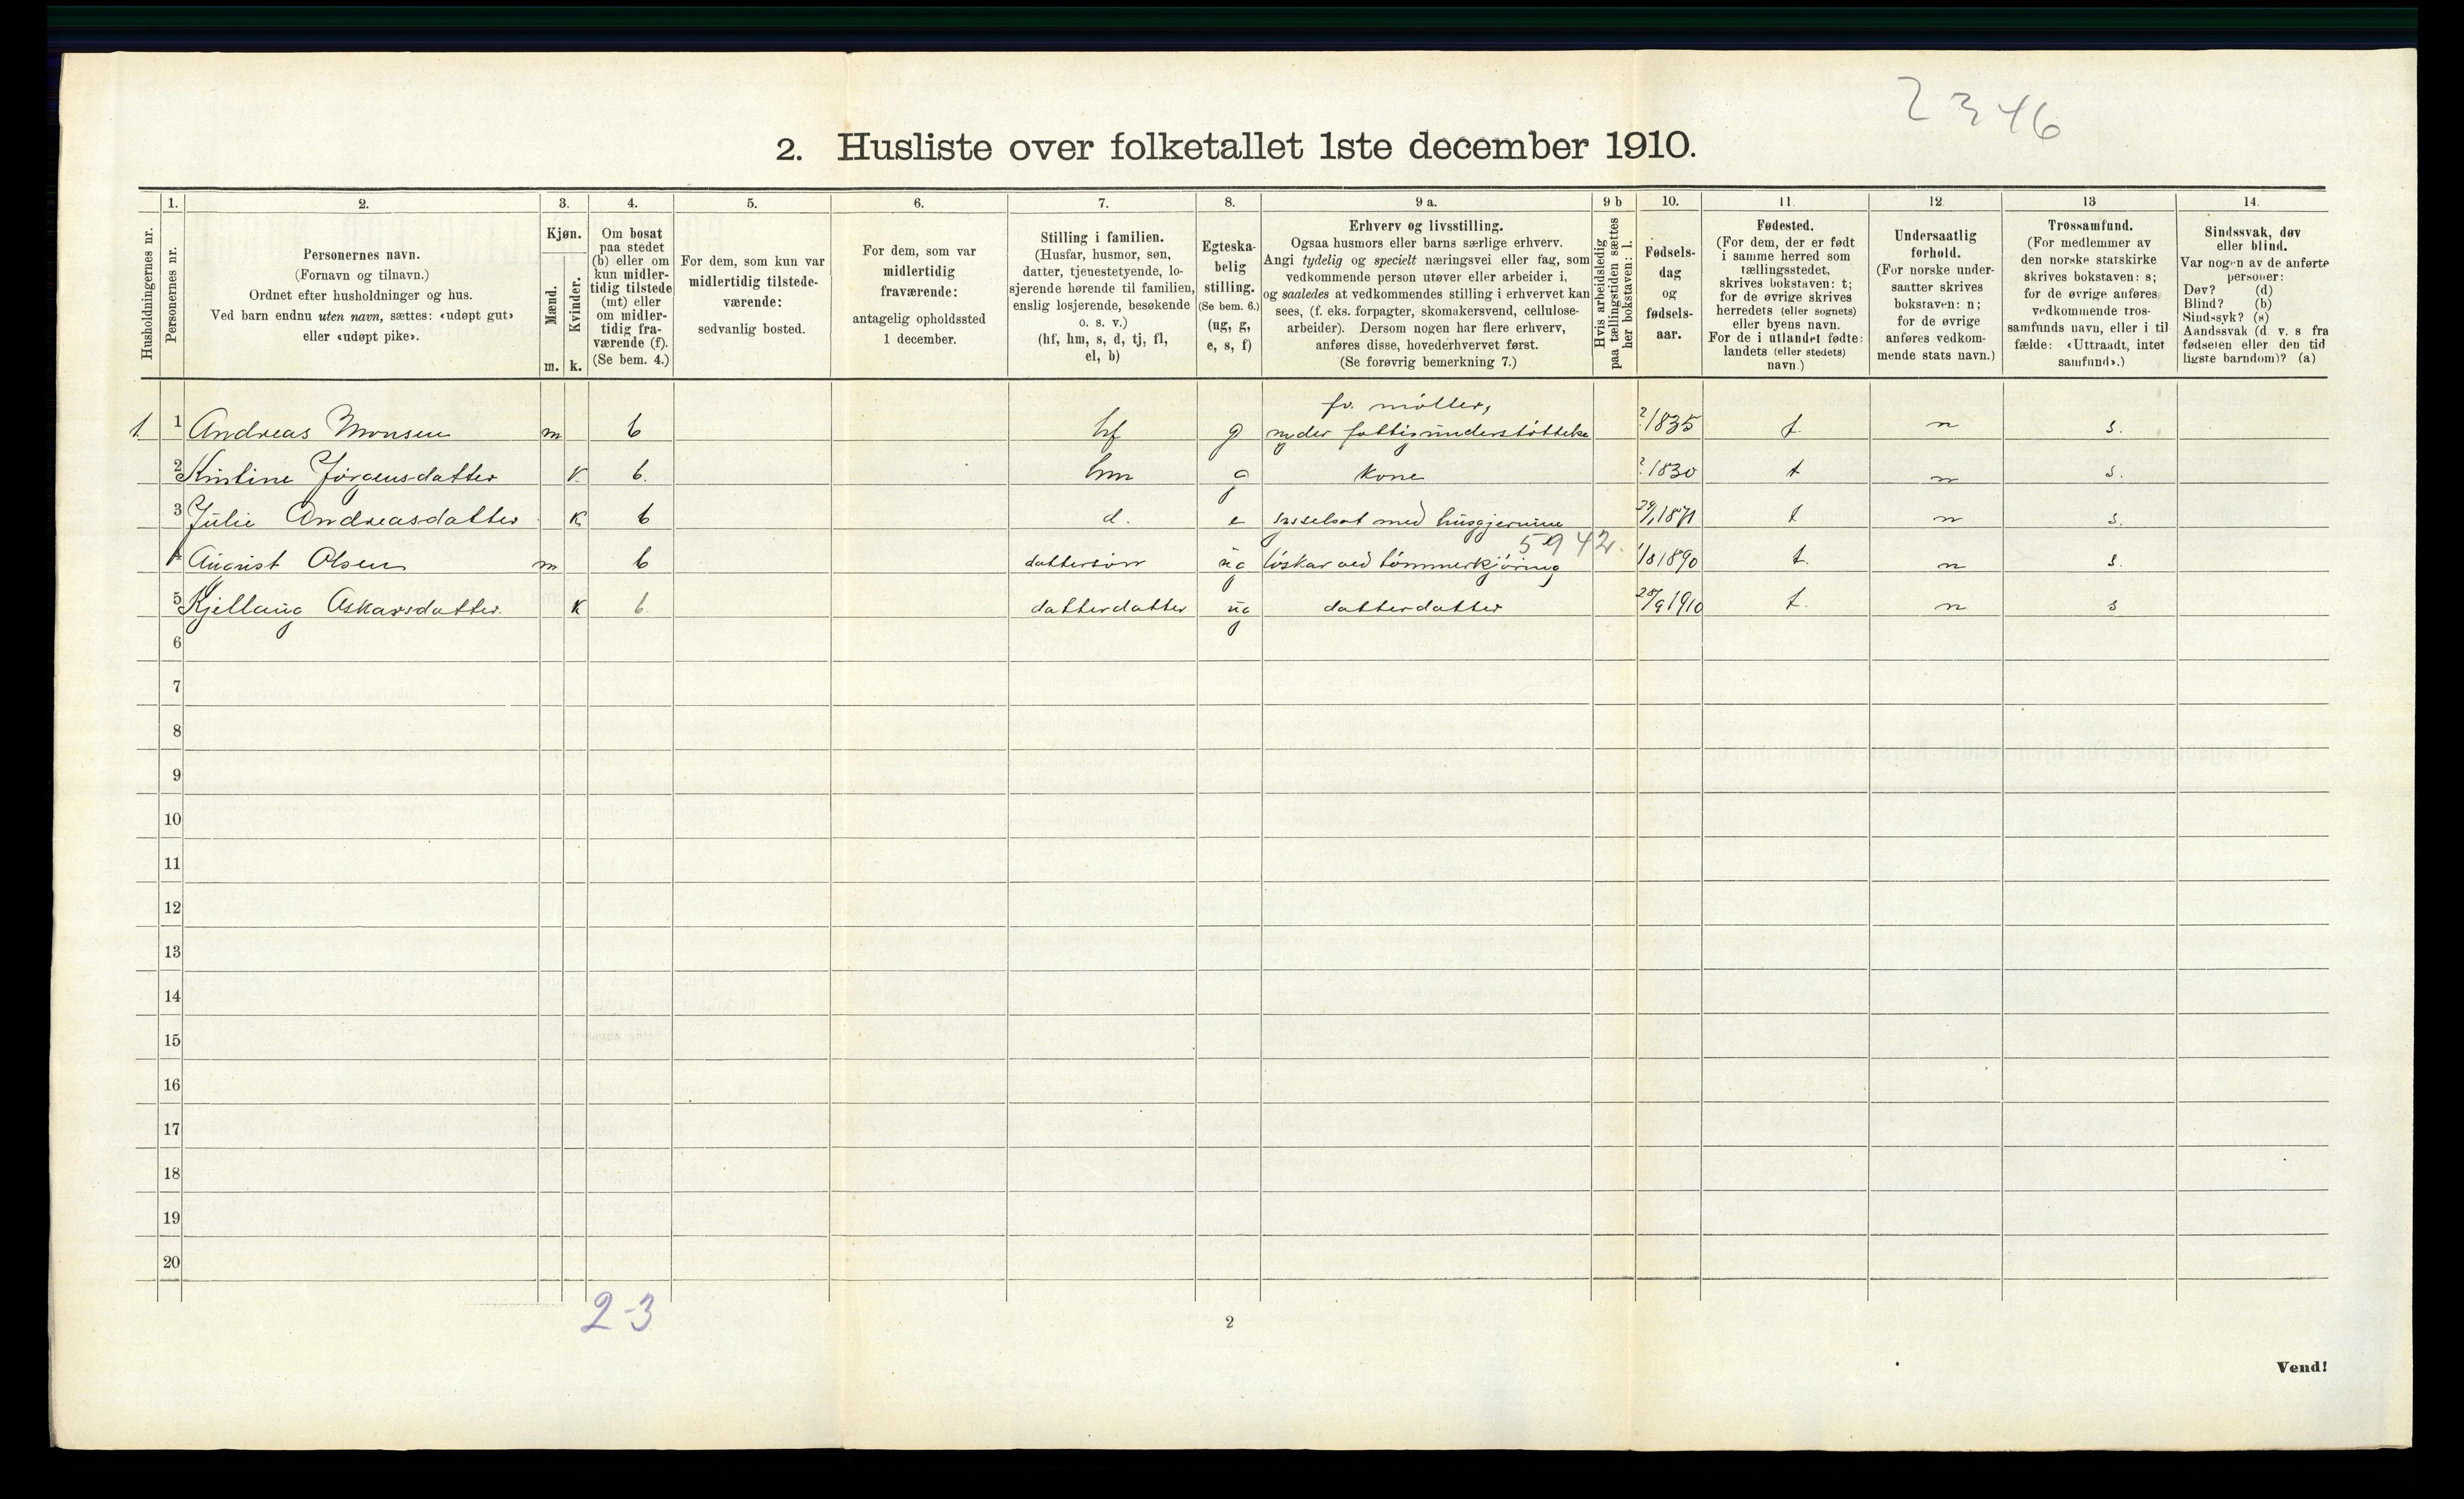 2346
2. Husliste over folketallet 1ste december 1910.
Husholdningernes nr.
1.
Personernes nr.
2.
Personernes navn.
(Fornavn og tilnavn.)
Ordnet efter husholdninger og hus.
Ved barn endnu uten navn, sættes: «udøpt gut»
eller «udøpt pike».
3.
Kjøn.
Mænd.
Kvinder.
m. k.
4.
Om bosat
paa stedet
(b) eller om
kun midler-
tidig tilstede
(mt) eller
om midler-
tidig fra-
værende (f).
(Se bem. 4.)
5.
For dem, som kun var
midlertidig tilstede-
værende:
sedvanlig bosted.
6.
For dem, som var
midlertidig
fraværende:
antagelig opholdssted
1 december.
7.
Stilling i familien.
(Husfar, husmor, søn,
datter, tjenestetyende, lo-
sjerende hørende til familien,
enslig losjerende, besøkende
o. s. v.)
(hf, hm, s, d, tj, fl,
el, b)
8.
Egteska-
belig
stilling.
(Se bem. 6.)
(ug, g,
e, s, f)
9 a.
Erhverv og livsstilling.
Ogsaa husmors eller barns særlige erhverv.
Angi tydelig og specielt næringsvei eller fag, som
vedkommende person utøver eller arbeider i,
og saaledes at vedkommendes stilling i erhvervet kan
sees, (f. eks. forpagter, skomakersvend, cellulose-
arbeider). Dersom nogen har flere erhverv,
anføres disse, hovederhvervet først.
(Se forøvrig bemerkning 7.)
9 b
Hvis arbeidsledig
paa tællingstiden sættes
her bokstaven: l.
10.
Fødsels-
dag
og
fødsels-
aar.
11.
Fødested.
(For dem, der er født
i samme herred som
tællingsstedet,
skrives bokstaven: t;
for de øvrige skrives
herredets (eller sognets)
eller byens navn.
For de i utlandet fødte:
landets (eller stedets)
navn.)
12
Undersaatlig
forhold.
(For norske under-
saatter skrives
bokstaven: n;
for de øvrige
anføres vedkom-
mende stats navn.)
13
Trossamfund.
(For medlemmer av
den norske statskirke
skrives bokstaven: s;
for de øvrige anføres
vedkommende tros-
samfunds navn, eller i til
fælde: «Uttraadt, intet
samfund».)
14.
Sindssvak, døv
eller blind.
Var nogen av de anførte
personer:
Døv? (d)
Blind? (b)
Sindssyk? (s)
Aandssvak (d. v. s fra
fødselen eller den tid
ligste barndom)? (a)
fv. møller,
1. 1 Andreas Monsen m b hf g under fattigunderstøttelse ? 1835 t. n s.
2 Kristine Jørgensdatter k. b. hm g kone ? 1830 t n s.
3 Julie Andreasdatter k b d. e sysselsat med husgjerning 1871 t n s.
5942.
4 August Olsen m b dattersøn ug løskar ved tømmerkjøring 1/8 1890 t. n s.
5 Kjellaug Askarsdatter. k b. datterdatter ug datterdatter 28/9 1910 t. n s
6
7
8
9
10
11
12
13
14
15
16
17
18
19
20
2-3
2
Vend!